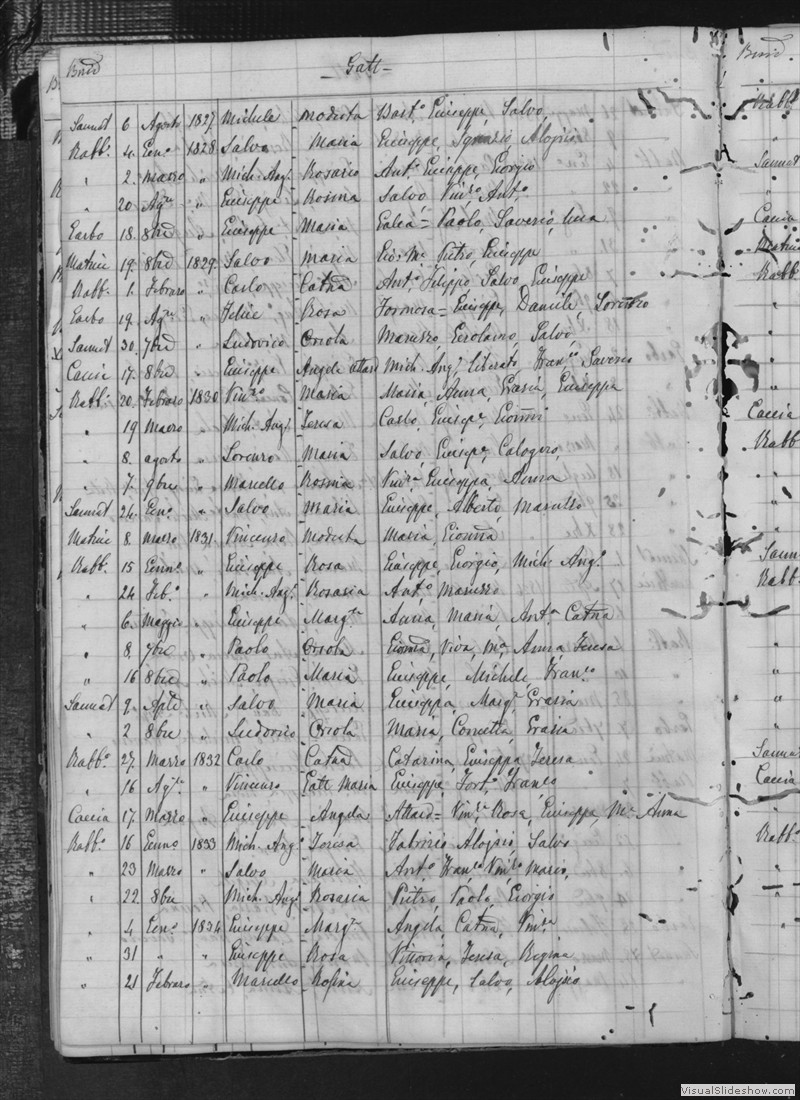 Bned
- Gatt -
Samuel 6. Agosto 1827. Michele Modesta Bast.o Giuseppe, Salvo,
Rabb.o 4. Gen.o 1828. Salvo Maria Giuseppe, Ignazio Aloysio
" 2. Marzo " Mich. Ang.o Rosario Ant.o Giuseppe, Giorgio
" 20. Ag.to " Giuseppe Rosina Salvo Vin.zo Ant.o
18. 8bre " Giuseppe Maria Galea = Paolo, Saverio,
Matrice 19. 8bre 1829. Salvo Maria Pietro, Giuseppe
Rabb. 1. Febraro " Carlo Catna Ant.o Filippo Salvo Giuseppe
19. Ag.to " Felice Rosa Formosa = Giuseppe, Daniele, Lorenzo
Samuel 30. 7bre " Ludovico Orsola Maruzzo, Gerolamo, Salvo,
Caccia 17. 8bre " Giuseppe Angela Attard Mich. Ang.o Liberato, Fran.co Saverio
Rabb. 20. Febraro 1830 Vin.zo Maria Maria, Anna, Grazia, Giuseppa
" 19 Marzo " Mich. Ang.o Teresa Carlo, Giusepe, Gionni
" 8. agosto " Lorenzo Maria Salvo, Giusepe, Calogero,
" 7. 9bre " Marcello Rosina Vin.za Giuseppa, Anna
Samuel 24. Gen.o " Salvo Maria Giuseppe, Alberto, Maruzzo
Matrice 8. Marzo 1831. Vincenzo Modesta Maria, Gionna
Rabb. 15 Genn.o " Giuseppe Rosa Giuseppe, Giorgio, Mich. Ang.o
" 24 Feb.o " Mich. Ang.o Rosaria Ant.o Maruzzo
" 6. Maggio " Giuseppe Marg.ta Anna, Maria, Ant.a Catna
" 8. 7bre " Paolo Orsola Gionna, Viva, M.a Anna Teresa
" 16 8bre " Paolo Maria Giuseppe, Michele, Fran.co
Samuel 9. Aple " Salvo Maria Giuseppa, Marg.ta Grazia
" 2 8bre " Ludovico Orsola Maria, Cornetta, Grazia
Rabb.o 27. Marzo 1832 Carlo Catna Catarina, Giuseppa, Teresa
" 16 Ag.to " Vincenzo Gatt Maria Giuseppe, Fort.o Franco
Caccia 17. Marzo " Giuseppe Angela Attard = Vin.za Rosa, Giuseppa, M.a Anna
Rabb.o 16 Genno 1833 Mich. Ang.o Teresa Fabrizio Aloysio, Salvo
" 23 Marzo " Salvo Maria Ant.o Fran.co Vin.zo Mario,
" 22 8bre " Mich. Ang.o Rosaria Pietro, Paolo, Giorgio
" 4 Gen.o 1834 Giuseppe Marg.ta Angela, Catna, Vin.za
" 31 " " Giuseppe Rosa Vittoria, Teresa, Regina
" 21 Febraro " Marcello Rosina Giuseppe, Salvo, Aloysio
Bned.
Rabb.
Samuel
Caccia
Matrice
Rabb.
Caccia
Rabb
Samuel
Rabb.
Samuel
Caccia
Rabb.o
VisualSlideshow.com